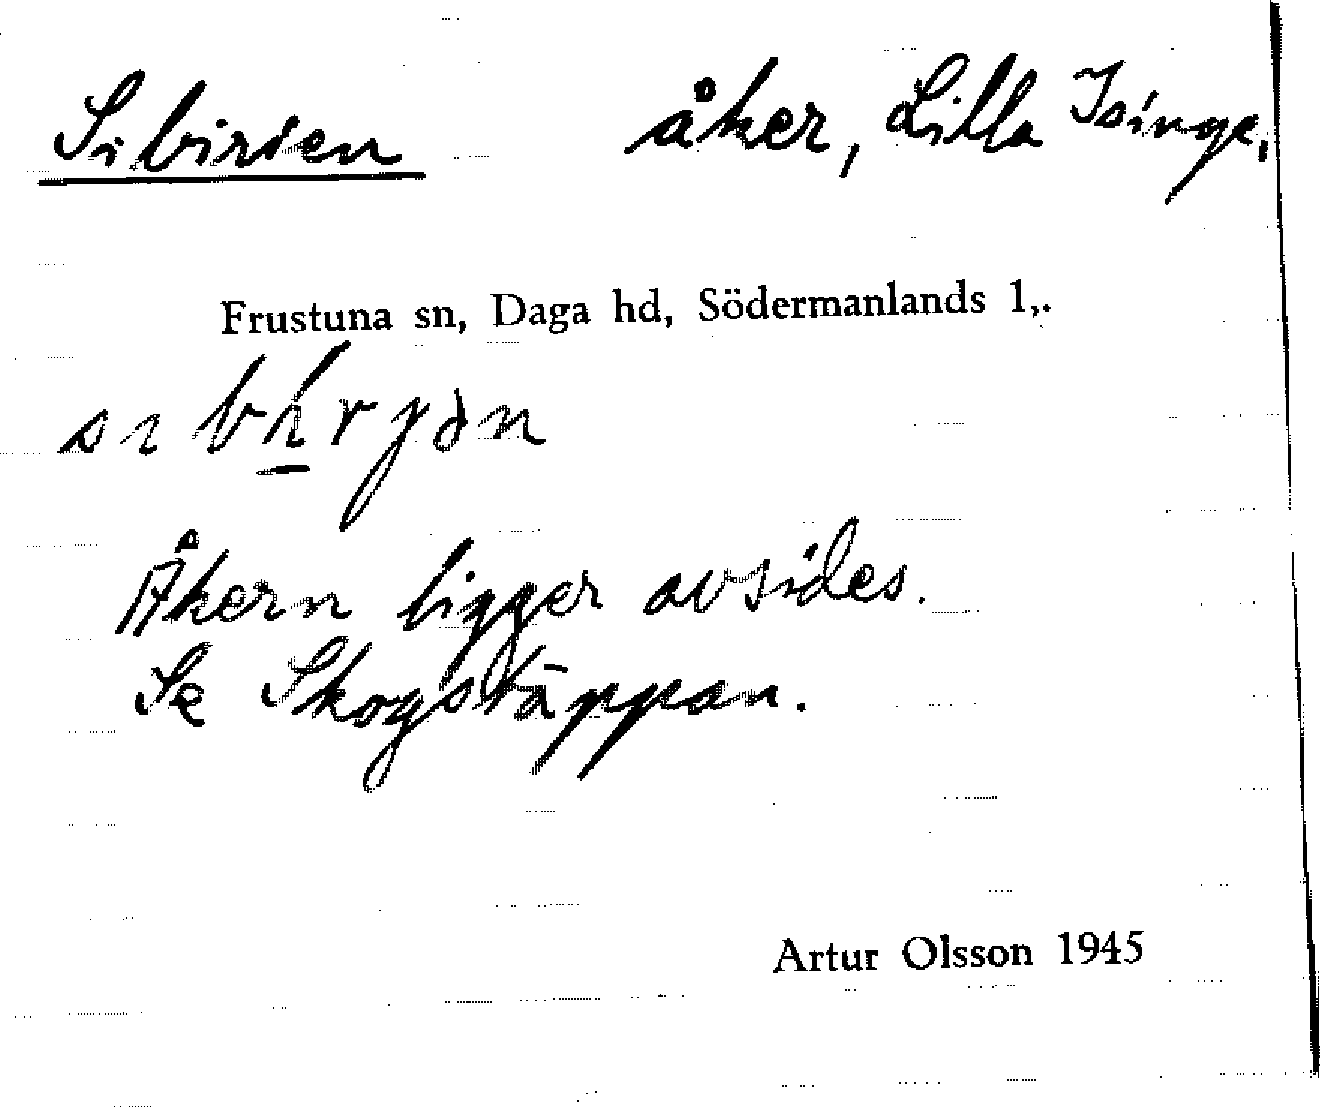 Sibirien åker, Lilla Isinge,
Frustuna sn, Daga hd, Södermanlands l,.
Åkern ligger avsides.
Se Skogstäppan.
Artur Olsson 1945